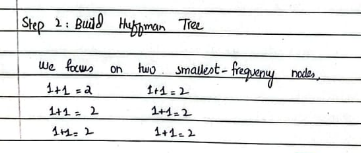 Step 2: Build Huffman Tree
We focus on two smallest-frequency nodes.
1+1=2 1+1=2
1+1=2 1+1=2
1+1=2 1+1=2